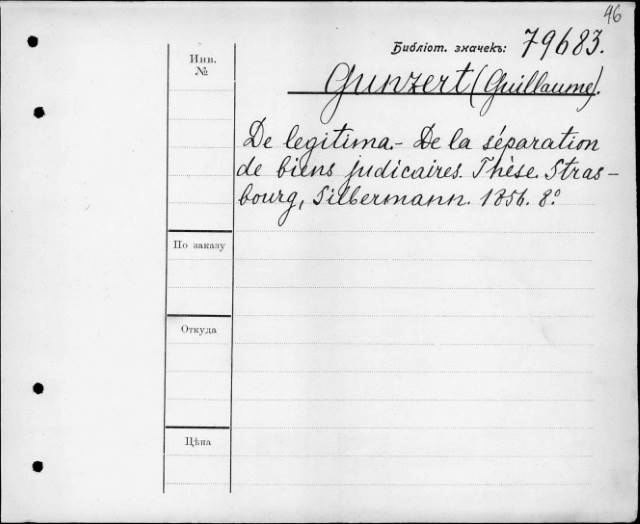 46
Библіот. значекъ: 79683.
Инв.
№
Gunzert (Guillaume).
De legitima.- De la séparation
de biens judicaires. Thèse. Stras-
bourg, Silbermann. 1856. 8º
По заказу
Откуда
Цѣна